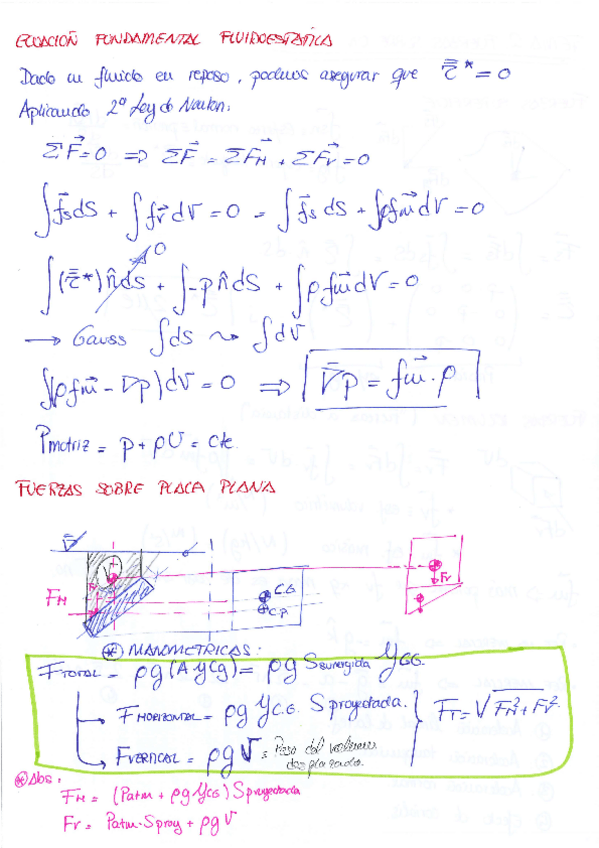 ECUACIÓN FUNDAMENTAL FLUIDOESTÁTICA
Dado un fluido en reposo, podemos asegurar que τ̿* = 0
Aplicando 2º Ley de Newton:
ΣF⃗=0 ⇒ ΣF⃗ = ΣF⃗_H + ΣF⃗_V = 0
∫f⃗s dS + ∫f⃗v dV = 0 = ∫f⃗s dS + ∫ρf⃗m dV = 0
∫(τ̿*)n̂ ds + ∫-p n̂ dS + ∫ρ f⃗m dV = 0
0
→ Gauss ∫dS ⇝ ∫dV
∫(ρf⃗m - ∇p)dV = 0 ⇒ ∇̄p = f⃗m · ρ
Pmotriz = p + ρU = cte
FUERZAS SOBRE PLACA PLANA
∇
V
Fv
FH
C.G.
C.P.
Fv
* MANOMETRICAS:
FTOTAL = ρg(A·ycg) = ρg Ssumergida YCG.
FHORIZONTAL = ρg YC.G. Sproyectada.
FT = √FH²+FV²
FVERTICAL = ρgV = Peso del volumen
desplazado.
* Abs:
FH = (Patm + ρgYCG) Sproyectada
Fv = Patm·Sproy + ρgV